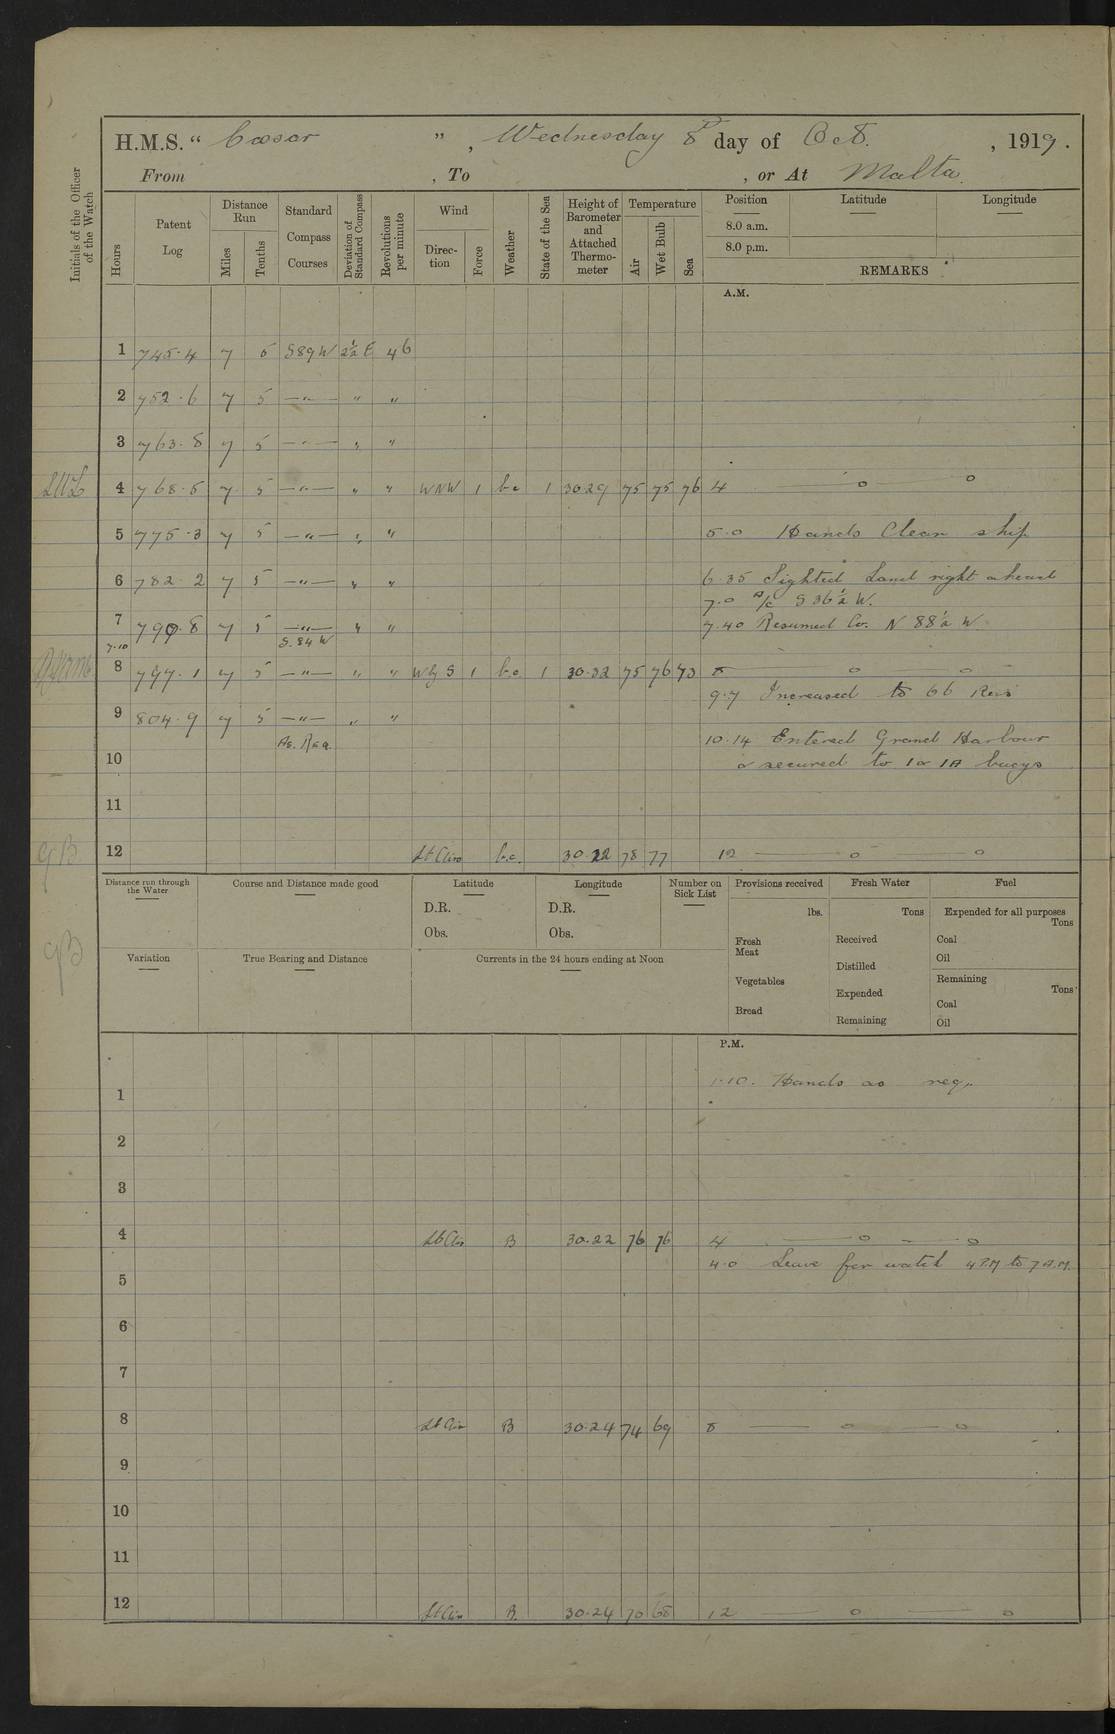 H.M.S. “ Cæsar ” , Wednesday 8th day of Oct. , 1919 .
From , To , or At Malta.
Initials of the Officer of the Watch
Hours
Patent Log
Distance Run
Miles
Tenths
Standard Compass Courses
Deviation of Standard Compass
Revolutions per minute
Wind
Direc-tion
Force
Weather
State of the Sea
Height of Barometer and Attached Thermo-meter
Temperature
Air
Wet Bulb
Sea
Position
8.0 a.m.
8.0 p.m.
Latitude
Longitude
REMARKS
A.M.
1 745·4 7 5 S89W 2½ E 46
2 752·6 7 5 —"— " "
3 763·8 7 5 —"— " "
4 768·5 7 5 —"— " " WNW 1 bc 1 30.29 75 75 76 4 —— o —— o
5 775·3 7 5 —"— " " 5·0 Hands Clean ship
6 782·2 7 5 —"— " " 6·35 Sighted Land right ahead
7·0 A/c S 36½ W.
7 790·8 7 5 —"— " " 7·40 Resumed Co. N 88½ W
7·10 S. 84 W
8 797·1 7 5 —"— " " W by S 1 bc 1 30·32 75 76 73 8 —— o —— o
9·7 Increased to 66 Revs
9 804·9 7 5 —"— " "
As. Req. 10·14 Entered Grand Harbour
10 & secured to 1 & 1A buoys
11
12 Lt Airs b.c. 30·22 78 77 12 —— o —— o
GB
Distance run through the Water
Course and Distance made good
Latitude
D.R.
Obs.
Longitude
D.R.
Obs.
Number on Sick List
Provisions received
lbs.
Fresh Meat
Vegetables
Bread
Fresh Water
Tons
Received
Distilled
Expended
Remaining
Fuel
Expended for all purposes
Tons
Coal
Oil
Remaining
Tons
Coal
Oil
GB
Variation
True Bearing and Distance
Currents in the 24 hours ending at Noon
P.M.
1 1·10. Hands as req.
2
3
4 Lt Airs B 30.22 76 76 4 —— o —— o
4·0 Leave for watch 4 P.M to 7 A.M.
5
6
7
8 Lt Airs B 30·24 74 69 8 —— o —— o
9
10
11
12 Lt Airs B. 30·24 70 68 12 —— o —— o